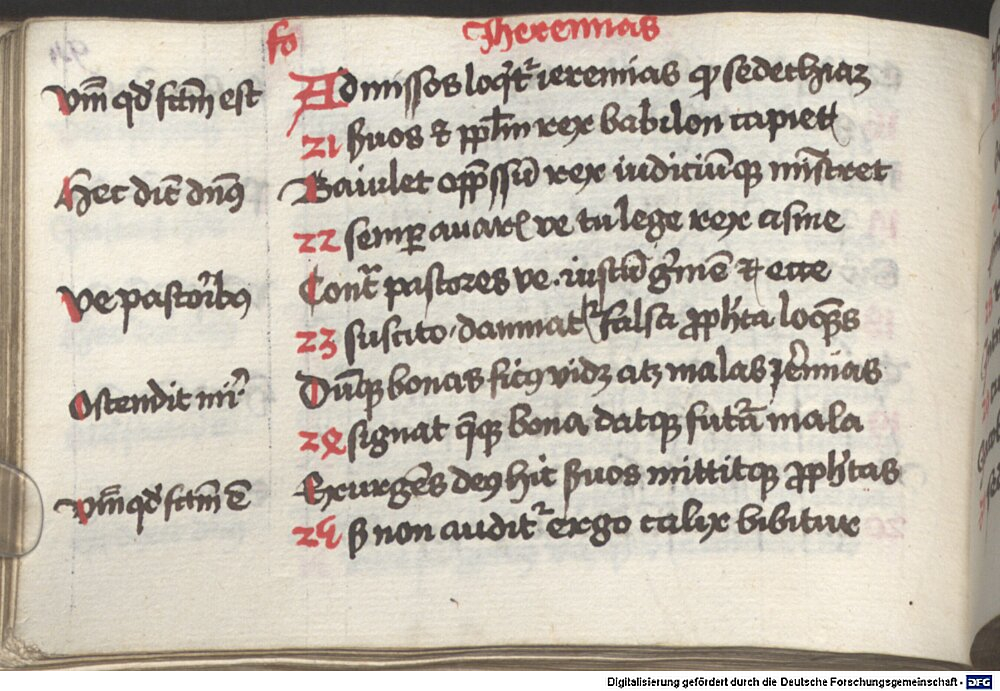 fo Jheremias
Vm̅ qd̕ fctm̅ est
Admissos loq̇t᷑ ieremias ꝙ sedechiaȝ
21 Suos & ppl̅m rex babilon capiet
Hec dic̅ dn̅s
Baiulet opp̅ssu̅ rex iudiciu̅qȝ mi̅stret
22 semp̲ auarꝭ ve tu lege rex asine
Ve pastoribꝰ
Cont̃ pastores ve iustu̅ g̕me̅ & ecce
23 suscito dampnat᷑ falsa ꝓph̅ta loque̅s
Ostendit mi̕
Du̅qȝ bonas ficꝰ vidȝ atȝ malas Jeremias
24 signat q̅qȝ bona datqȝ futa̅ mala
Vm̅ qd̕ fctm̅ e̅
Exurge̅s deꝰ hic suos mittitqȝ ꝓph̅tas
25 S̅ non audit᷑ ergo calix bibitur
Digitalisierung gefördert durch die Deutsche Forschungsgemeinschaft - DFG